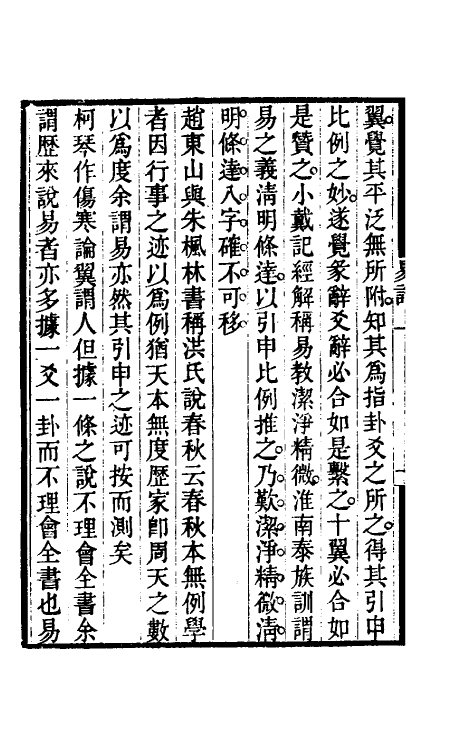 翼覺其平泛無所附知其為指卦爻之所之得其引申
比例之妙遂覺彖辭爻辭必合如是繫之十翼必合如
是贊之小戴記經解稱易教潔淨精微淮南泰族訓謂
易之義清明條達以引申比例推之乃歎潔淨精微清
明條達八字確不可移
趙東山與朱楓林書稱洪氏說春秋云春秋本無例學
者因行事之迹以為例猶天本無度歷家卽周天之數
以為度余謂易亦然其引申之迹可按而測矣
柯琴作傷寒論翼謂人但據一條之說不理會全書余
謂歷來說易者亦多據一爻一卦而不理會全書也易